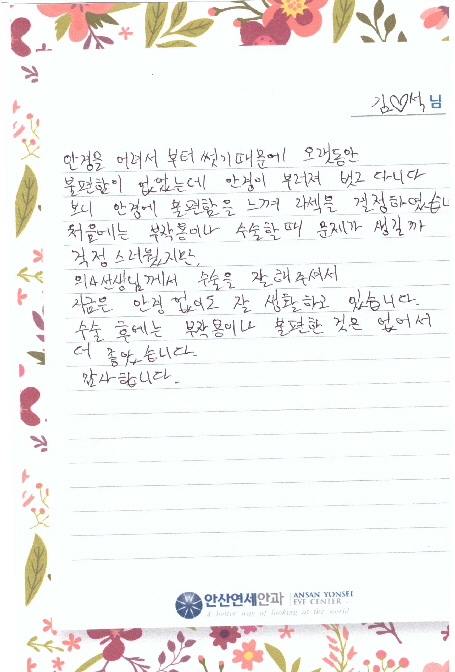 김♡석 님
안경을 어려서 부터 썻기때문에 오랫동안
불편함이 없었는데 안경이 부러져 벗고 다니다
보니 안경에 불편함을 느껴 라섹을 결정하였습니
처음에는 부작용이나 수술할때 문제가 생길까
걱정스러웠지만,
의사선생님께서 수술을 잘해주셔서
지금은 안경 없이도 잘 생활하고 있습니다.
수술 후에는 부작용이나 불편한 것은 없어서
더 좋았습니다.
감사합니다.
안산연세안과 ANSAN YONSEI
EYE CENTER
A better way of looking at the world